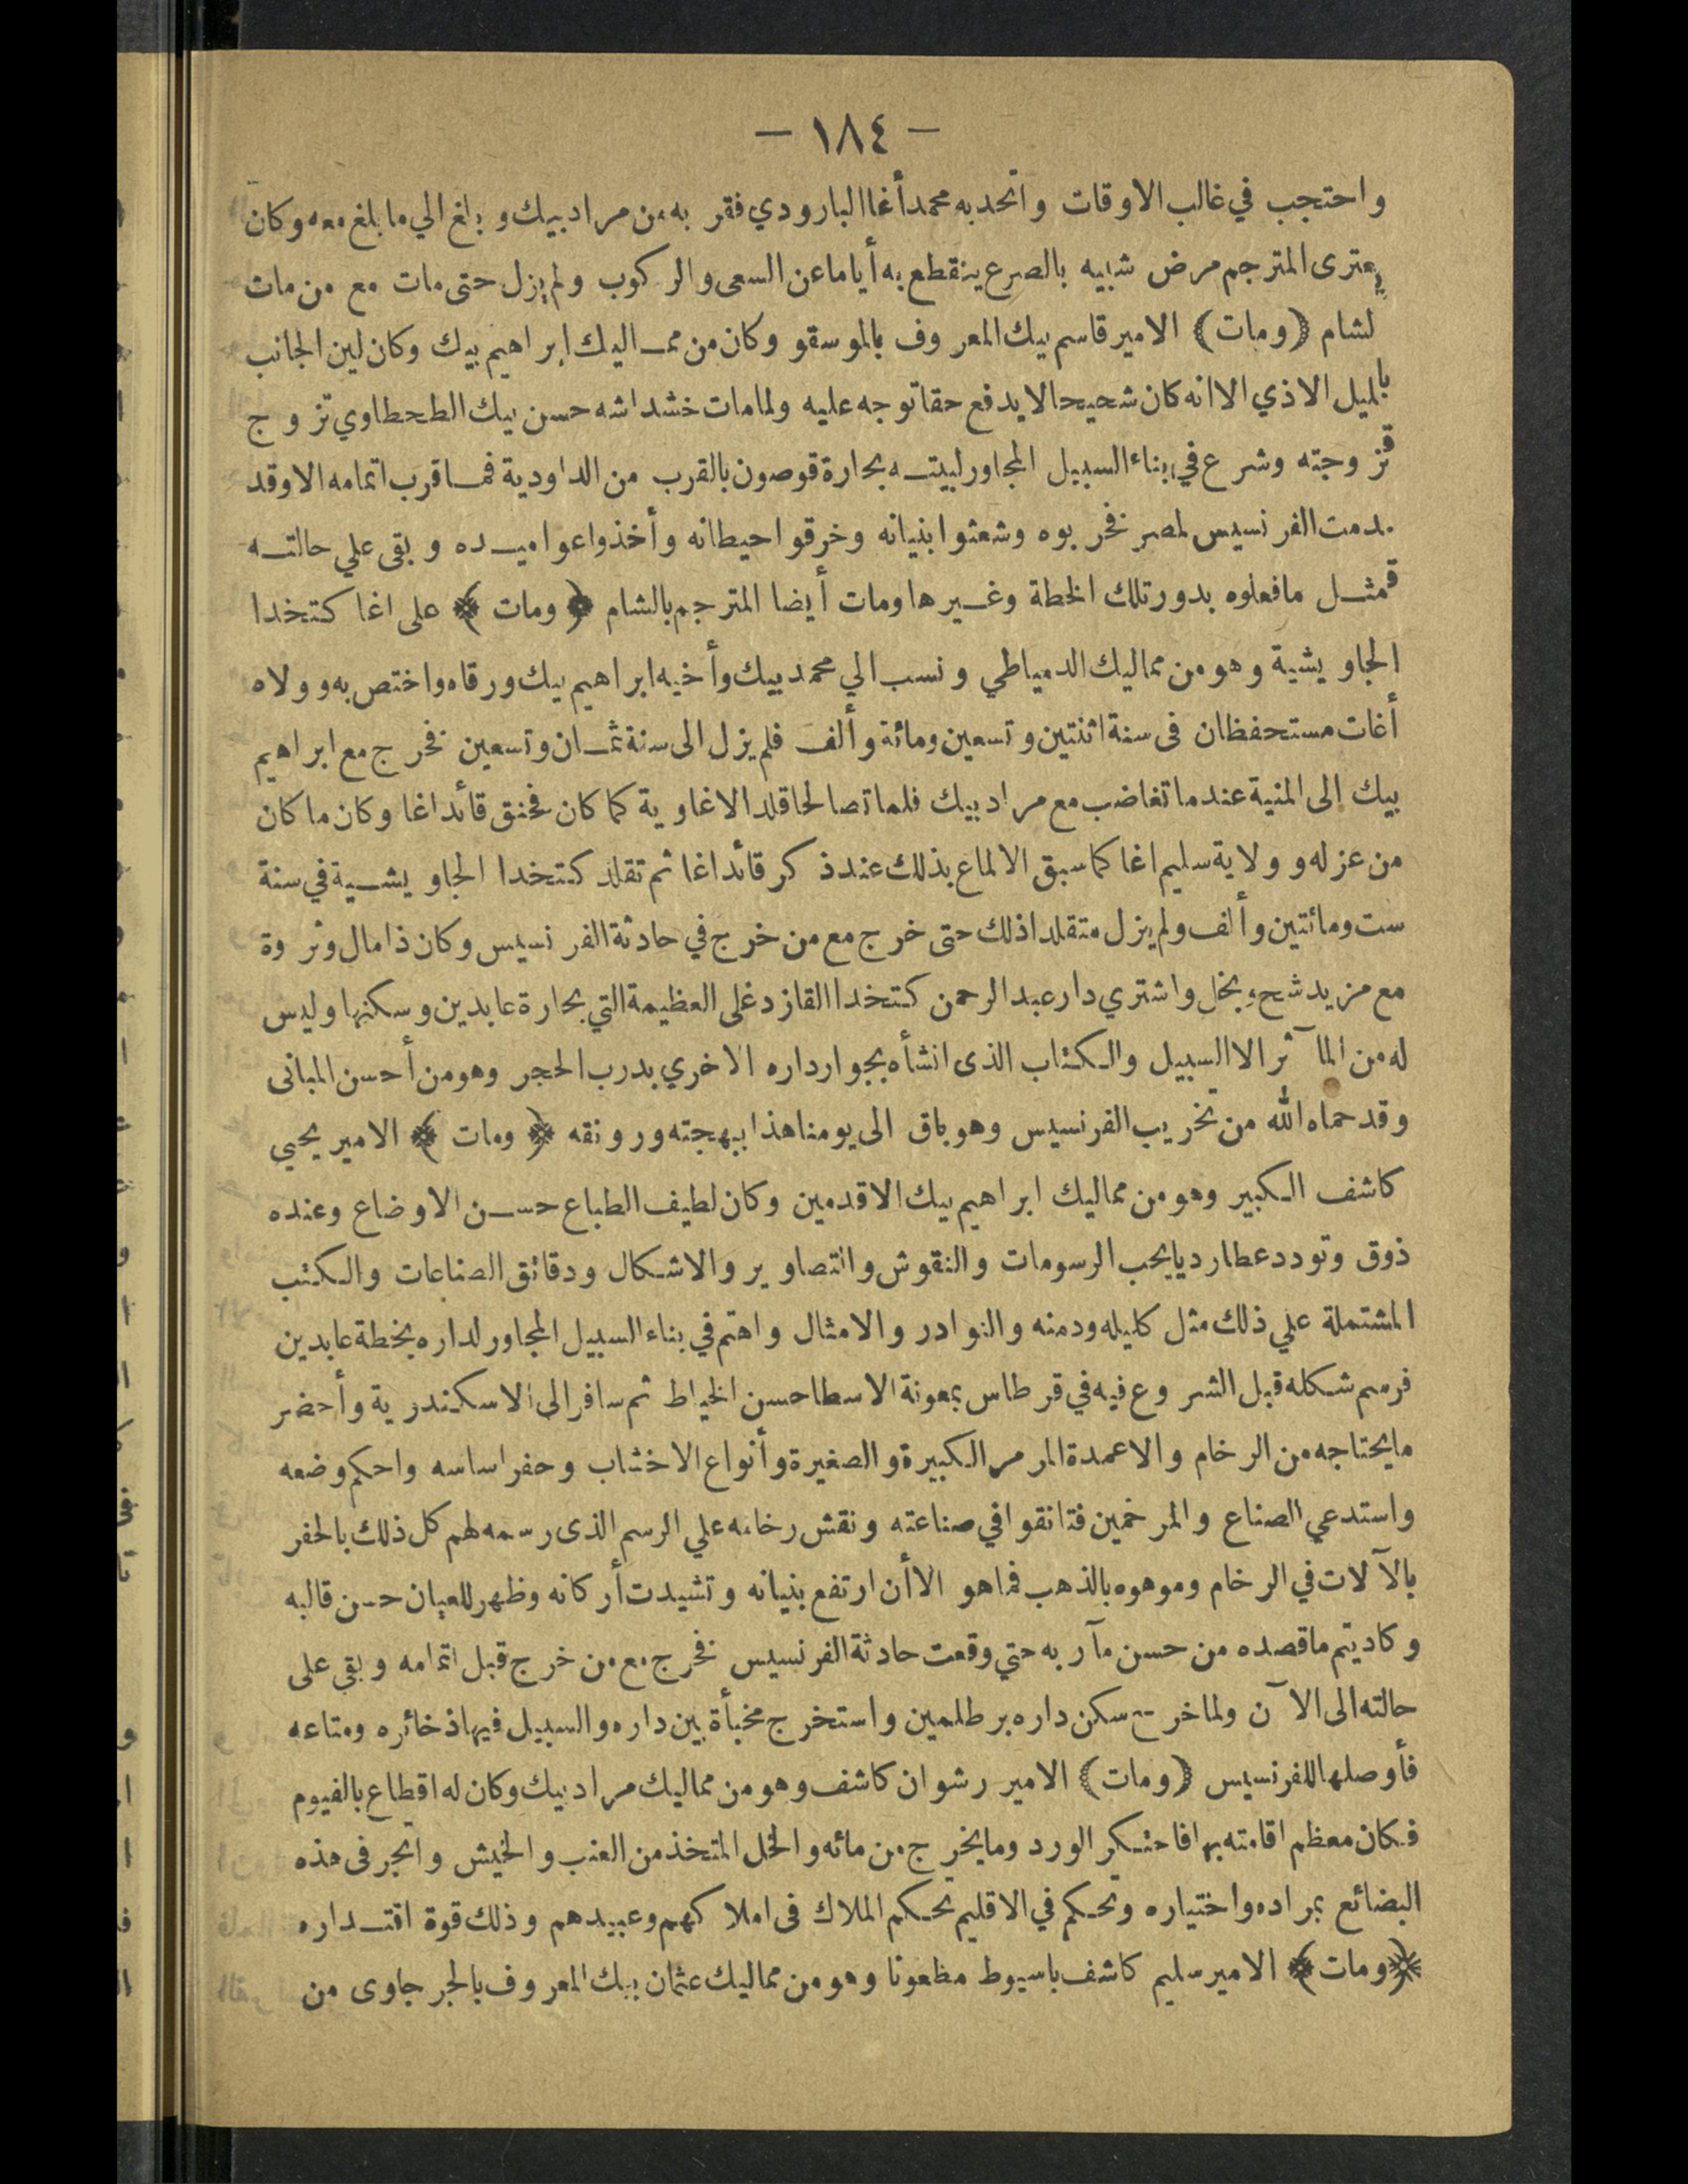 — ١٨٤ —
واحتجب في غالب الاوقات واتحد به محمد أغا البارودي فقر به من مراد بيك وبلغ الي ما بلغ معه وكان
يعترى المترجم مرض شبيه بالصرع ينقطع به أياما عن السعى والركوب ولم يزل حتى مات مع من مات
لشام (ومات) الامير قاسم بيك المعروف بالموسقو وكان من مماليك إبراهيم بيك وكان لين الجانب
بالميل الاذي الا انه كان شحيحا لا يدفع حقا توجه عليه ولما مات خشداشه حسن بيك الطحطاوي تزوج
قز وجته وشرع في بناء السبيل المجاور لبيته بحارة قوصون بالقرب من الداودية فما قرب اتمامه الا وقد
دمت الفرنسيس لمصر فخربوه وشعثوا بنيانه وخرقوا حيطانه وأخذوا عواميده وبقى علي حالته
قمثل ما فعلوه بدور تلك الخطة وغيرها ومات أيضا المترجم بالشام ﴿ ومات ﴾ على اغا كتخدا
الجاويشية وهو من مماليك الدمياطي ونسب الي محمد بيك وأخيه ابراهيم بيك ورقاه واختص به وولاه
أغات مستحفظان فى سنة اثنتين وتسعين ومائة وألف فلم يزل الى سنة ثمان وتسعين فخرج مع ابراهيم
بيك الى المنية عندما تغاضب مع مراد بيك فلما تصالحا قلد الاغاوية كما كان فخنق قائد اغا وكان ما كان
من عزله وولاية سليم اغا كما سبق الالماع بذلك عند ذكر قائد اغا ثم تقلد كتخدا الجاويشية في سنة
ست ومائتين وألف ولم يزل متقلدا ذلك حتى خرج مع من خرج في حادثة الفرنسيس وكان ذا مال وثروة
مع مزيد شح وبخل واشتري دار عبد الرحمن كتخدا القازدغلى العظيمة التي بحارة عابدين وسكنها وليس
له من المآثر الا السبيل والكتاب الذى انشأه بجوار داره الاخري بدرب الحجر وهو من أحسن المبانى
وقد حماه الله من تخريب الفرنسيس وهو باق الى يومنا هذا ببهجته ورونقه ﴿ ومات ﴾ الامير يحيي
كاشف الكبير وهو من مماليك ابراهيم بيك الاقدمين وكان لطيف الطباع حسن الاوضاع وعنده
ذوق وتودد عطارديا يحب الرسومات والنقوش والتصاوير والاشكال ودقائق الصناعات والكتب
المشتملة علي ذلك مثل كليله ودمنه والنوادر والامثال واهتم في بناء السبيل المجاور لداره بخطة عابدين
فرسم شكله قبل الشروع فيه في قرطاس بمعونة الاسطا حسن الخياط ثم سافر الى الاسكندرية وأحضر
ما يحتاجه من الرخام والاعمدة المرمر الكبيرة والصغيرة وأنواع الاخشاب وحفر اساسه واحكم وضعه
واستدعي الصناع والمرخمين فتانقوا في صناعته ونقش رخامه علي الرسم الذى رسمه لهم كل ذلك بالحفر
بالآلات في الرخام وموهوه بالذهب فما هو الا أن ارتفع بنيانه وتشيدت أركانه وظهر للعيان حسن قالبه
وكاد يتم ما قصده من حسن مآربه حتي وقعت حادثة الفرنسيس فخرج مع من خرج قبل اتمامه وبقي على
حالته الى الآن ولما خرج سكن داره برطلمين واستخرج مخبأة بين داره والسبيل فيها ذخائره ومتاعه
فأوصلها للفرنسيس (ومات) الامير رشوان كاشف وهو من مماليك مراد بيك وكان له اقطاع بالفيوم
فكان معظم اقامته بها فاحتكر الورد وما يخرج من مائه والخل المتخذ من العنب والخيش واتجر فى هذه
البضائع بمراده واختياره وتحكم في الاقليم تحكم الملاك فى املاكهم وعبيدهم وذلك قوة اقتداره
﴿ ومات ﴾ الامير سليم كاشف باسيوط مطعونا وهو من مماليك عثمان بيك المعروف بالجرجاوى من